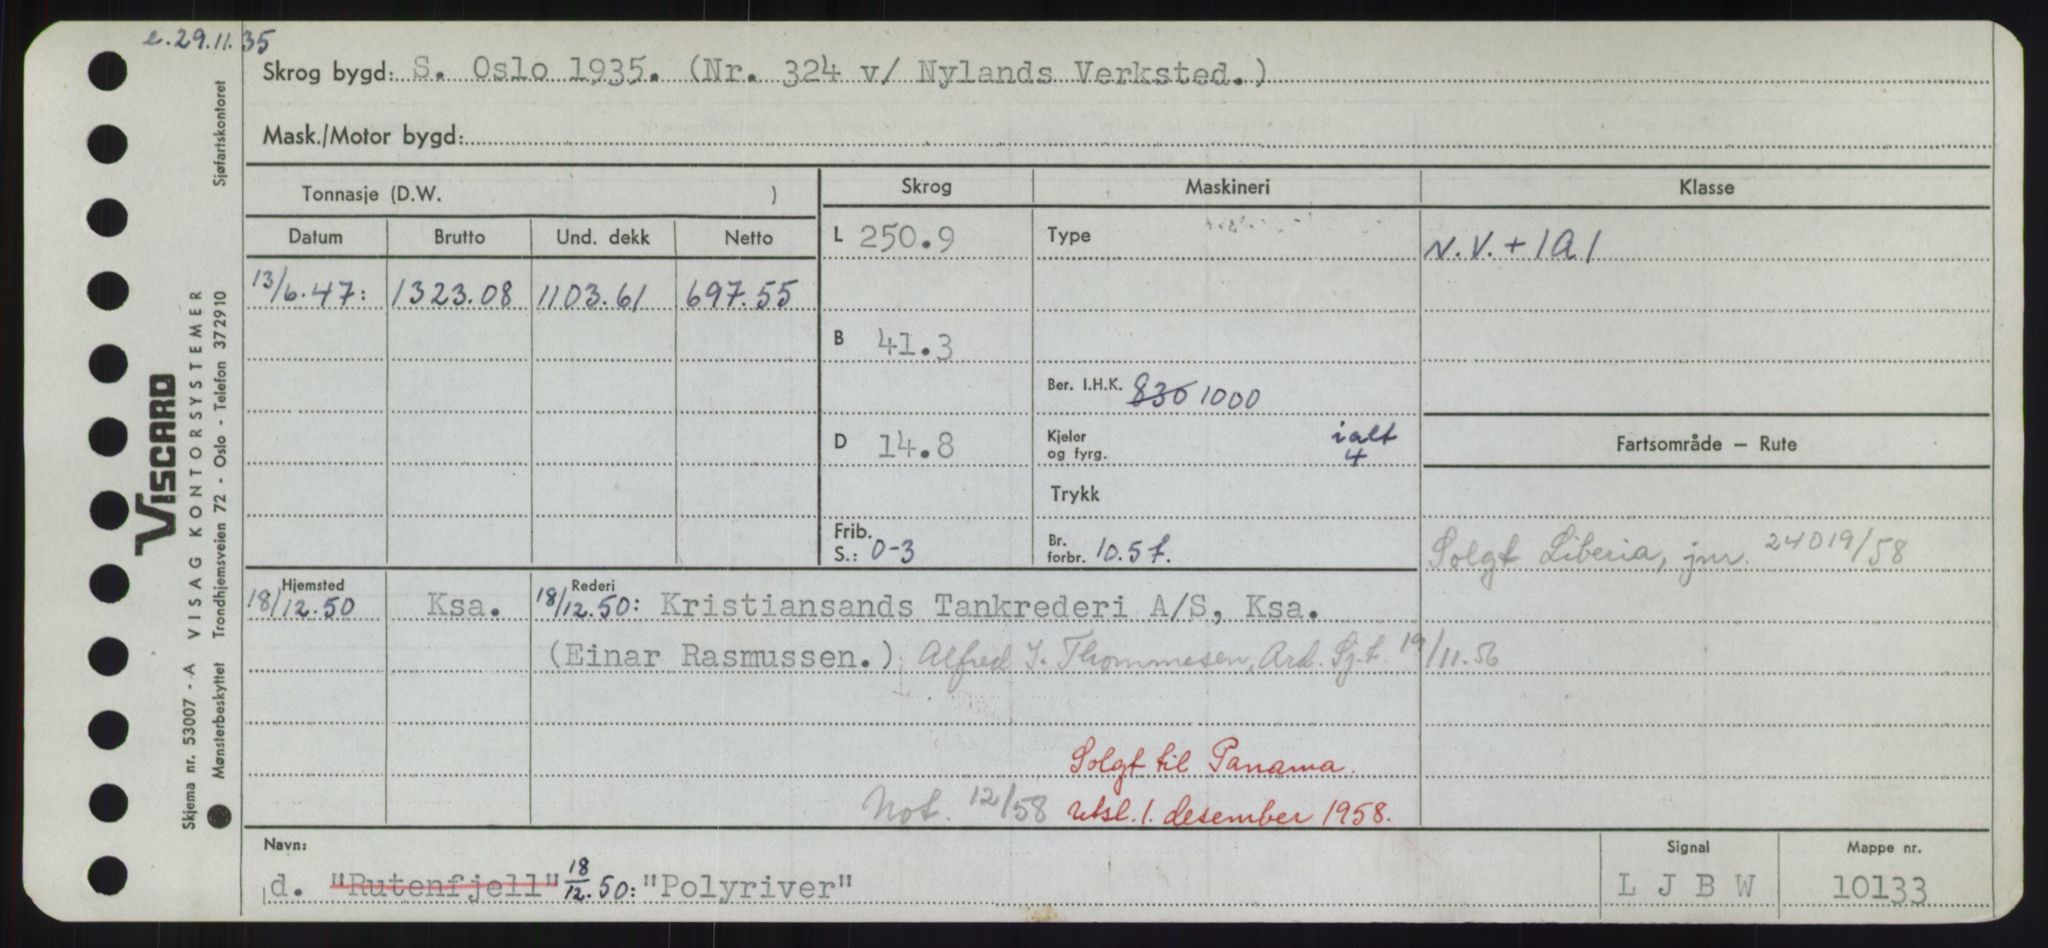 e. 29.11.35
Skrog bygd: S. Oslo 1935. (Nr. 324 v/ Nylands Verksted.)
Mask./Motor bygd:
Tonnasje (D.W. )
Skrog
Maskineri
Klasse
Datum
Brutto
Und. dekk
Netto
L 250.9
Type
N.V. + 1A1
13/6.47:
1323.08
1103.61
697.55
B 41.3
Ber. I.H.K. 836 1000
D 14.8
Kjeler og fyrg.
ialt
4
Fartsområde – Rute
Trykk
Frib.
S.: 0-3
Br. forbr. 10.5 t.
Solgt Liberia, jnr. 24019/58
Hjemsted
18/12.50
Ksa.
Rederi
18/12.50: Kristiansands Tankrederi A/S, Ksa.
(Einar Rasmussen.) Alfred J. Thommesen, Ard. Sj.t 19/11.56
Solgt til Panama.
Not. 12/58 utsl. 1. desember 1958.
Navn:
d. "Rutenfjell" 18/12.50: "Polyriver"
Signal
L J B W
Mappe nr.
10133
VISCARD
Skjema nr. 53007 - A VISAG KONTORSYSTEMER
Mønsterbeskyttet Trondhjemsveien 72 - Oslo - Telefon 372910 Sjøfartskontoret